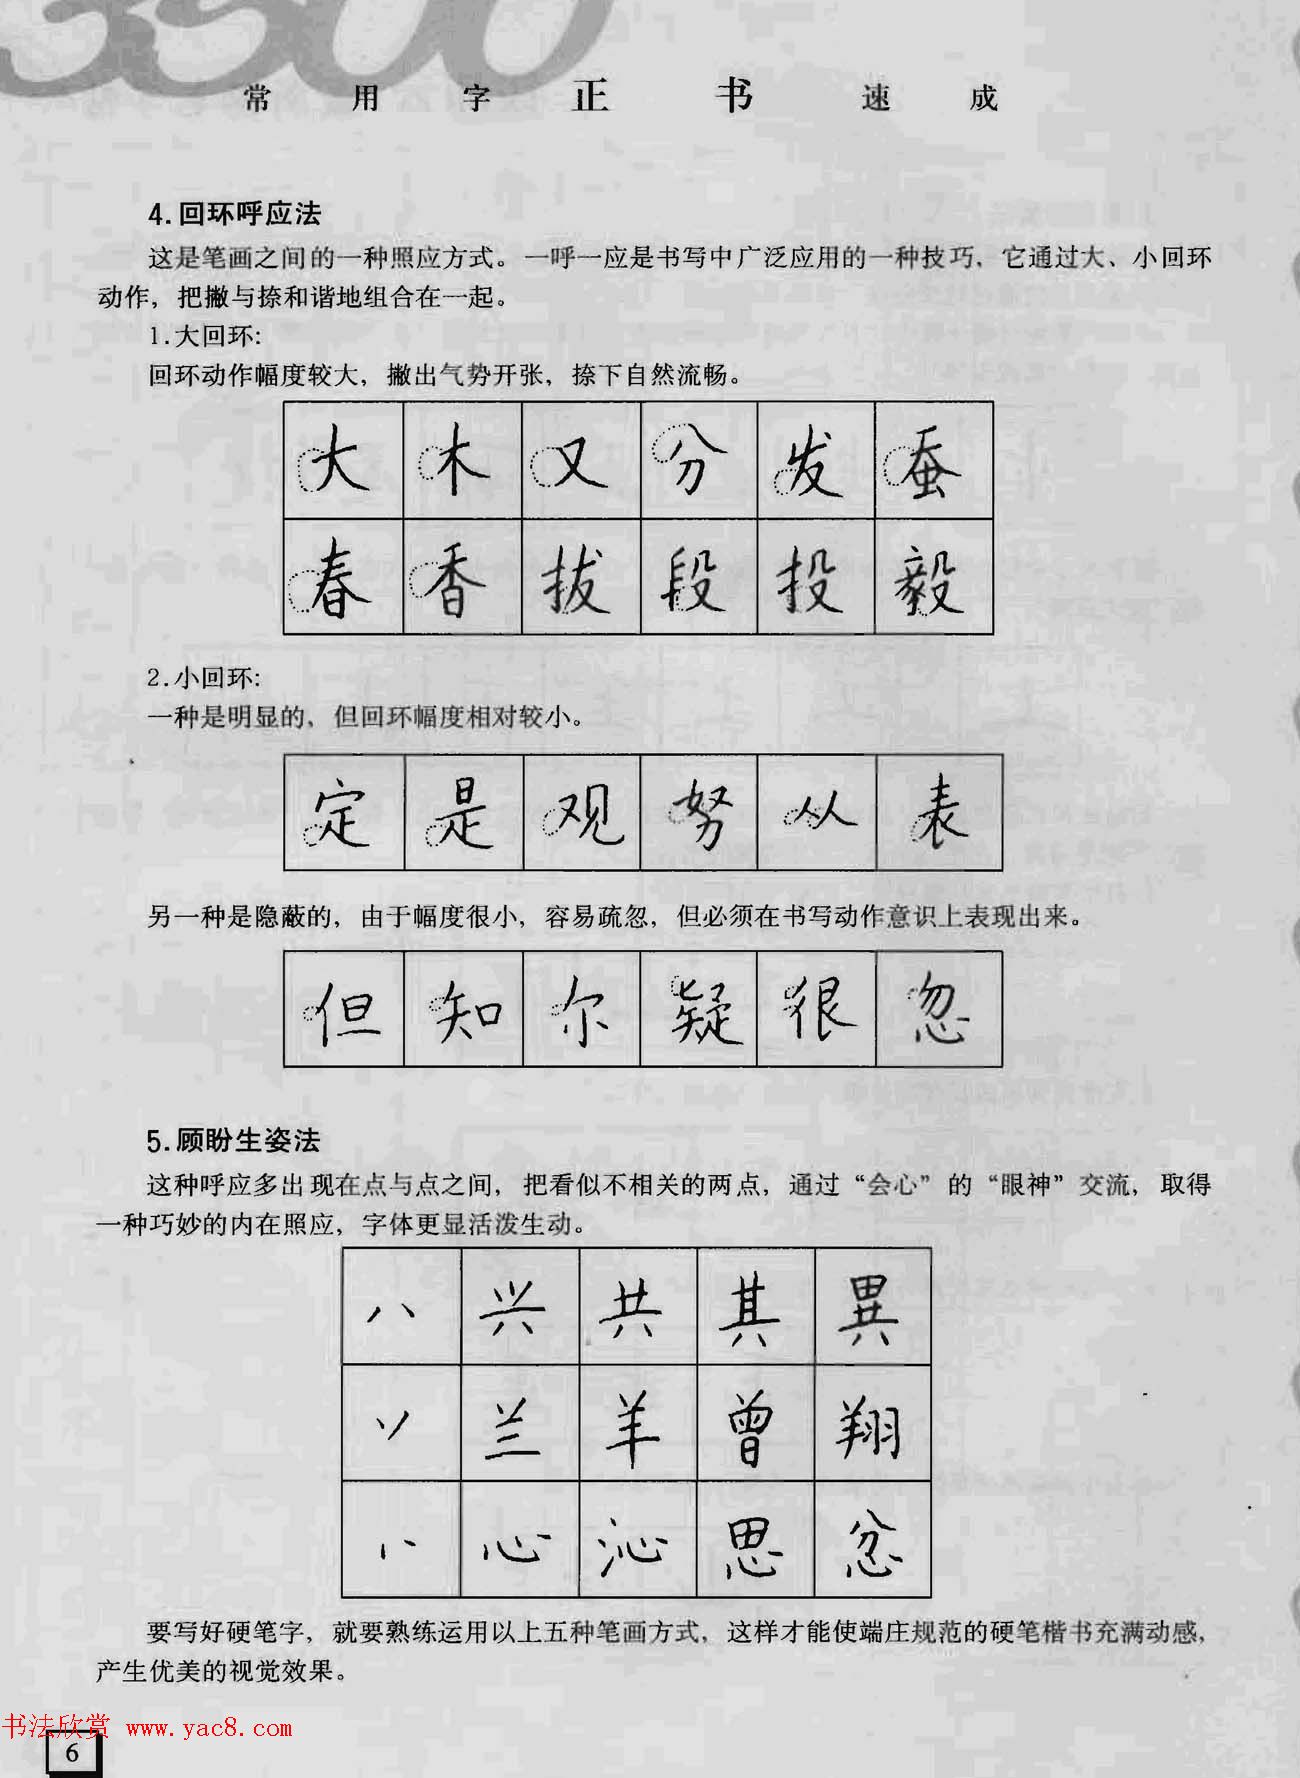 3500
常用字正书速成
4.回环呼应法
这是笔画之间的一种照应方式。一呼一应是书写中广泛应用的一种技巧，它通过大、小回环
动作，把撇与捺和谐地组合在一起。
1.大回环:
回环动作幅度较大，撇出气势开张，捺下自然流畅。
大 木 又 分 发 蚕
春 香 拔 段 投 毅
2.小回环:
一种是明显的，但回环幅度相对较小。
定 是 观 努 从 表
另一种是隐蔽的，由于幅度很小，容易疏忽，但必须在书写动作意识上表现出来。
但 知 尔 疑 很 忽
5.顾盼生姿法
这种呼应多出现在点与点之间，把看似不相关的两点，通过“会心”的“眼神”交流，取得
一种巧妙的内在照应，字体更显活泼生动。
八 兴 共 其 異
丷 兰 羊 曾 翔
心 沁 思 忿
要写好硬笔字，就要熟练运用以上五种笔画方式，这样才能使端庄规范的硬笔楷书充满动感，
产生优美的视觉效果。
书法欣赏 www.yac8.com
6